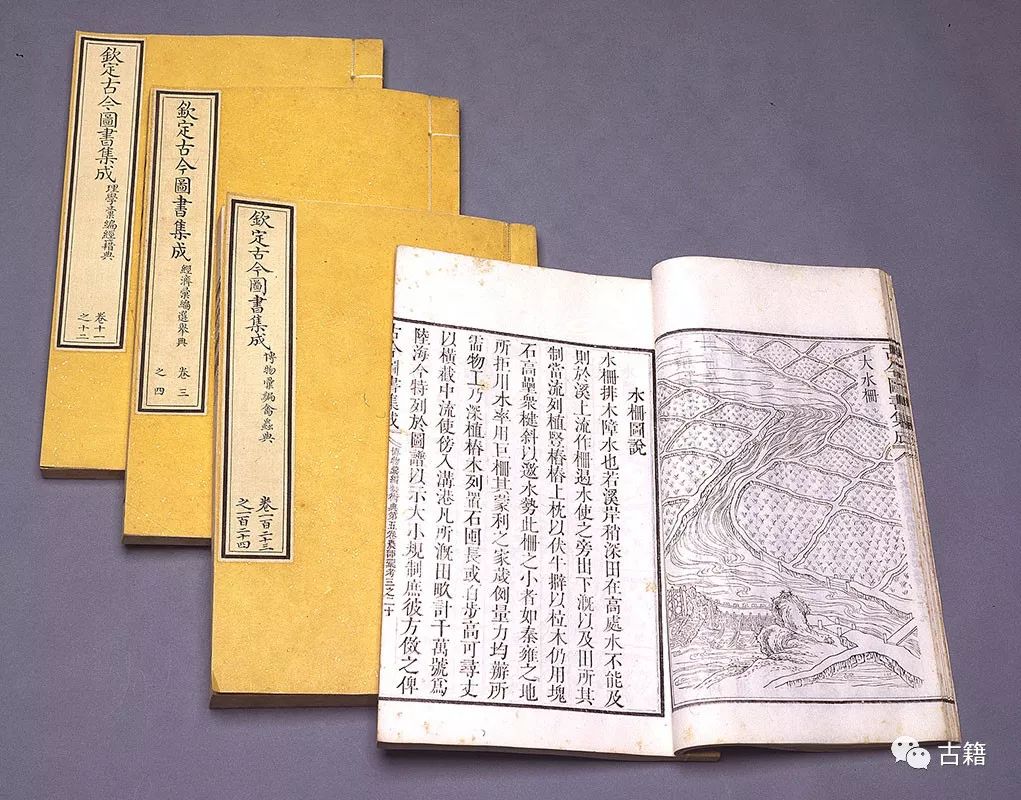 欽定古今圖書集成
理學彙編經籍典
卷十一
之十二
欽定古今圖書集成
經濟彙編選舉典
卷三
之四
欽定古今圖書集成
博物彙編禽蟲典
卷一百二十三
之一百二十四
大水柵
水柵圖說
水柵排木障水也若溪岸稍深田在高處水不能及
則於溪上流作柵遏水使之旁出下溉以及田所其
制當流列植豎樁樁上枕以伏牛擗以柆木仍用塊
石高壘衆楗斜以邀水勢此柵之小者如秦雍之地
所拒川水率用巨柵其蒙利之家歲例量力均辦所
需物工乃深植樁木列置石囤長或百步高可尋丈
以橫截中流使傍入溝港凡所溉田畝計千萬號爲
陸海今特列於圖譜以示大小規制庶彼方傚之俾
古今圖書集成
博物彙編藝術典第五卷農部彙考三之二十
古籍